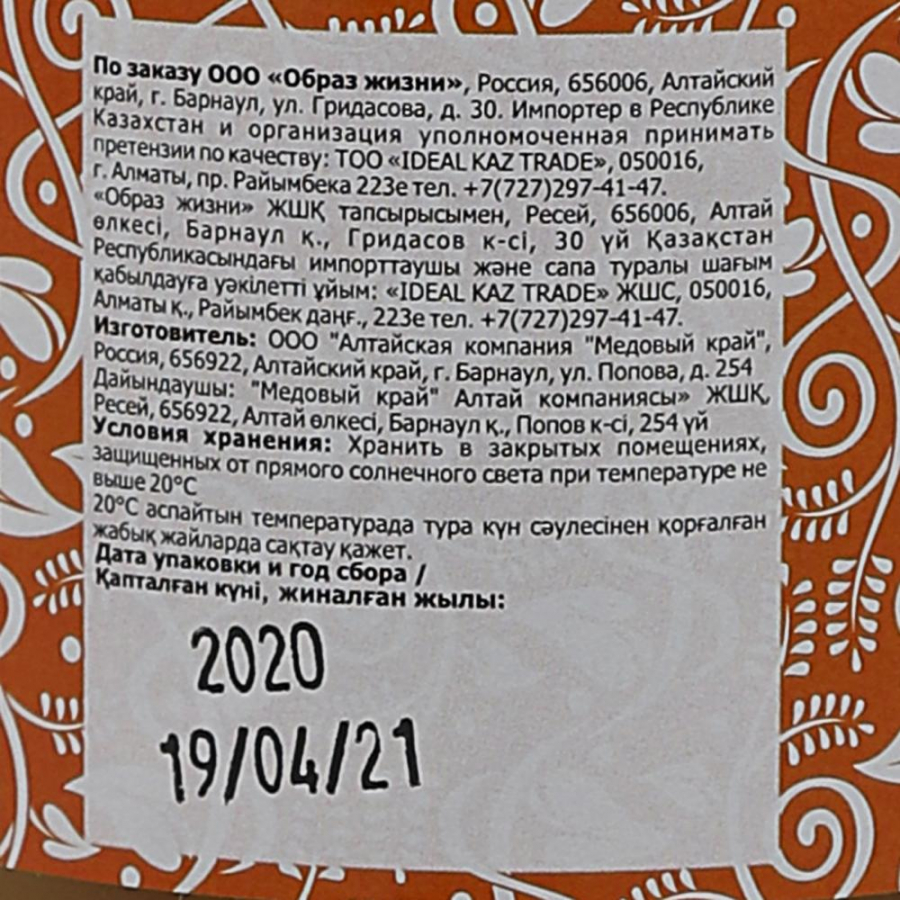 По заказу ООО «Образ жизни», Россия, 656006, Алтайский
край, г. Барнаул, ул. Гридасова, д. 30. Импортер в Республике
Казахстан и организация уполномоченная принимать
претензии по качеству: ТОО «IDEAL KAZ TRADE», 050016,
г. Алматы, пр. Райымбека 223е тел. +7(727)297-41-47.
«Образ жизни» ЖШҚ тапсырысымен, Ресей, 656006, Алтай
өлкесі, Барнаул қ., Гридасов к-сі, 30 үй Қазақстан
Республикасындағы импорттаушы және сапа туралы шағым
қабылдауға уәкілетті ұйым: «IDEAL KAZ TRADE» ЖШС, 050016,
Алматы қ., Райымбек даңғ., 223е тел. +7(727)297-41-47.
Изготовитель: ООО "Алтайская компания "Медовый край",
Россия, 656922, Алтайский край, г. Барнаул, ул. Попова, д. 254
Дайындаушы: "Медовый край" Алтай компаниясы» ЖШҚ,
Ресей, 656922, Алтай өлкесі, Барнаул қ., Попов к-сі, 254 үй
Условия хранения: Хранить в закрытых помещениях,
защищенных от прямого солнечного света при температуре не
выше 20°С
20°С аспайтын температурада тура күн сәулесінен қорғалған
жабық жайларда сақтау қажет.
Дата упаковки и год сбора /
Қапталған күні, жиналған жылы:
2020
19/04/21